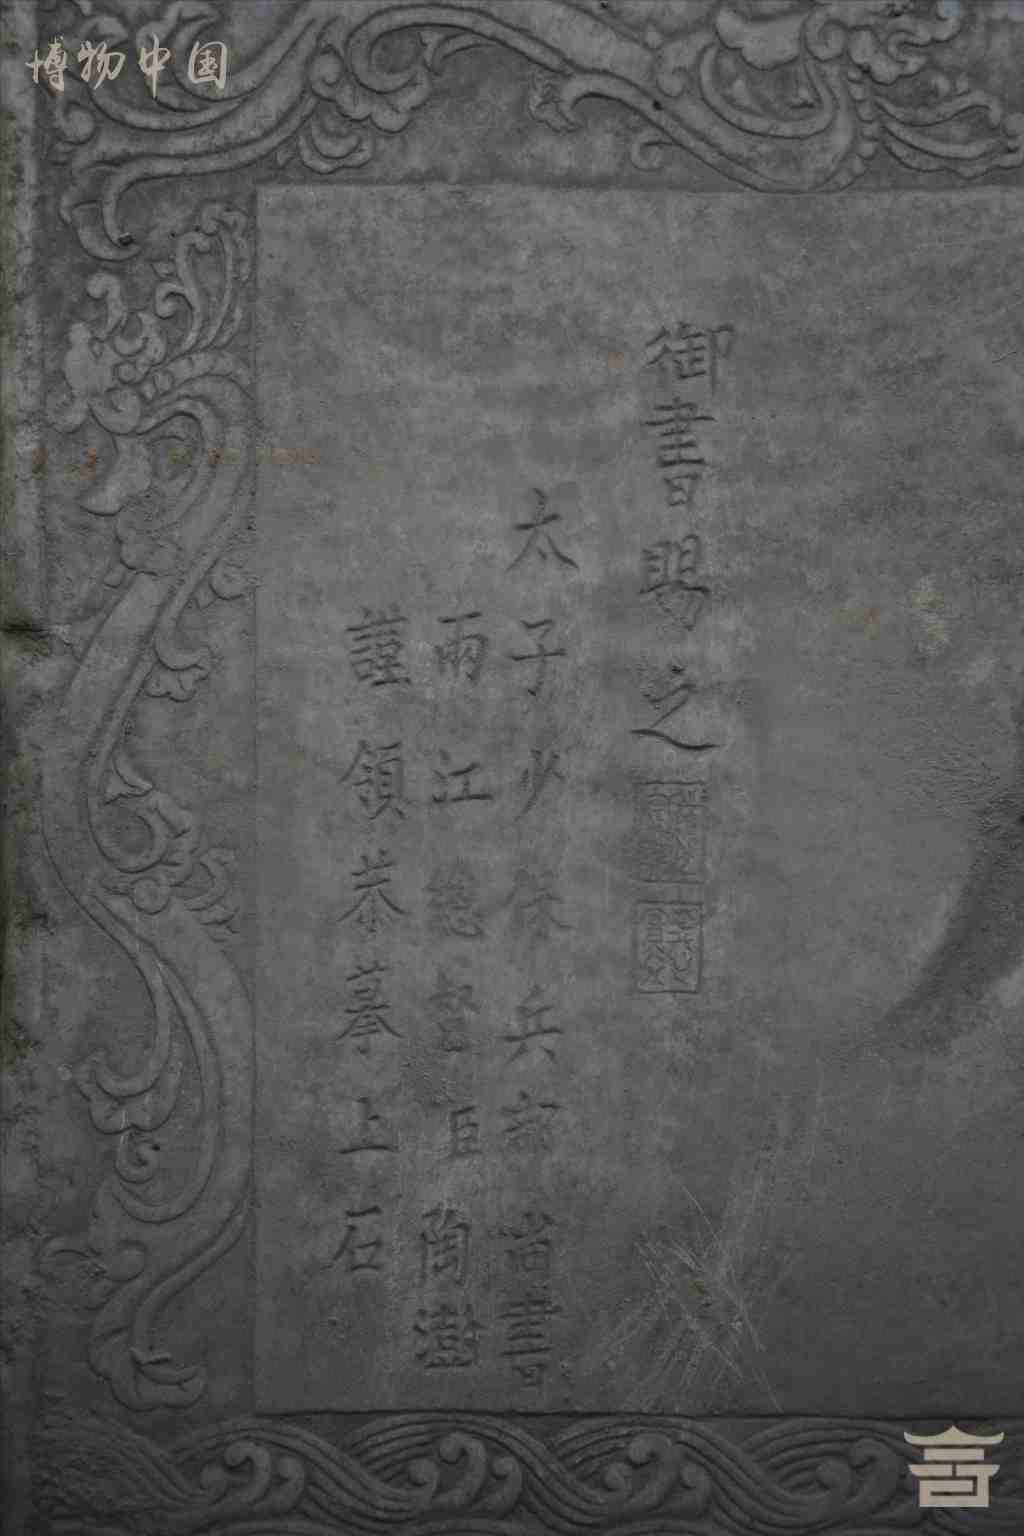 博物中国
御書賜之
太子少保兵部尚書
兩江總督臣陶澍
謹領恭摹上石